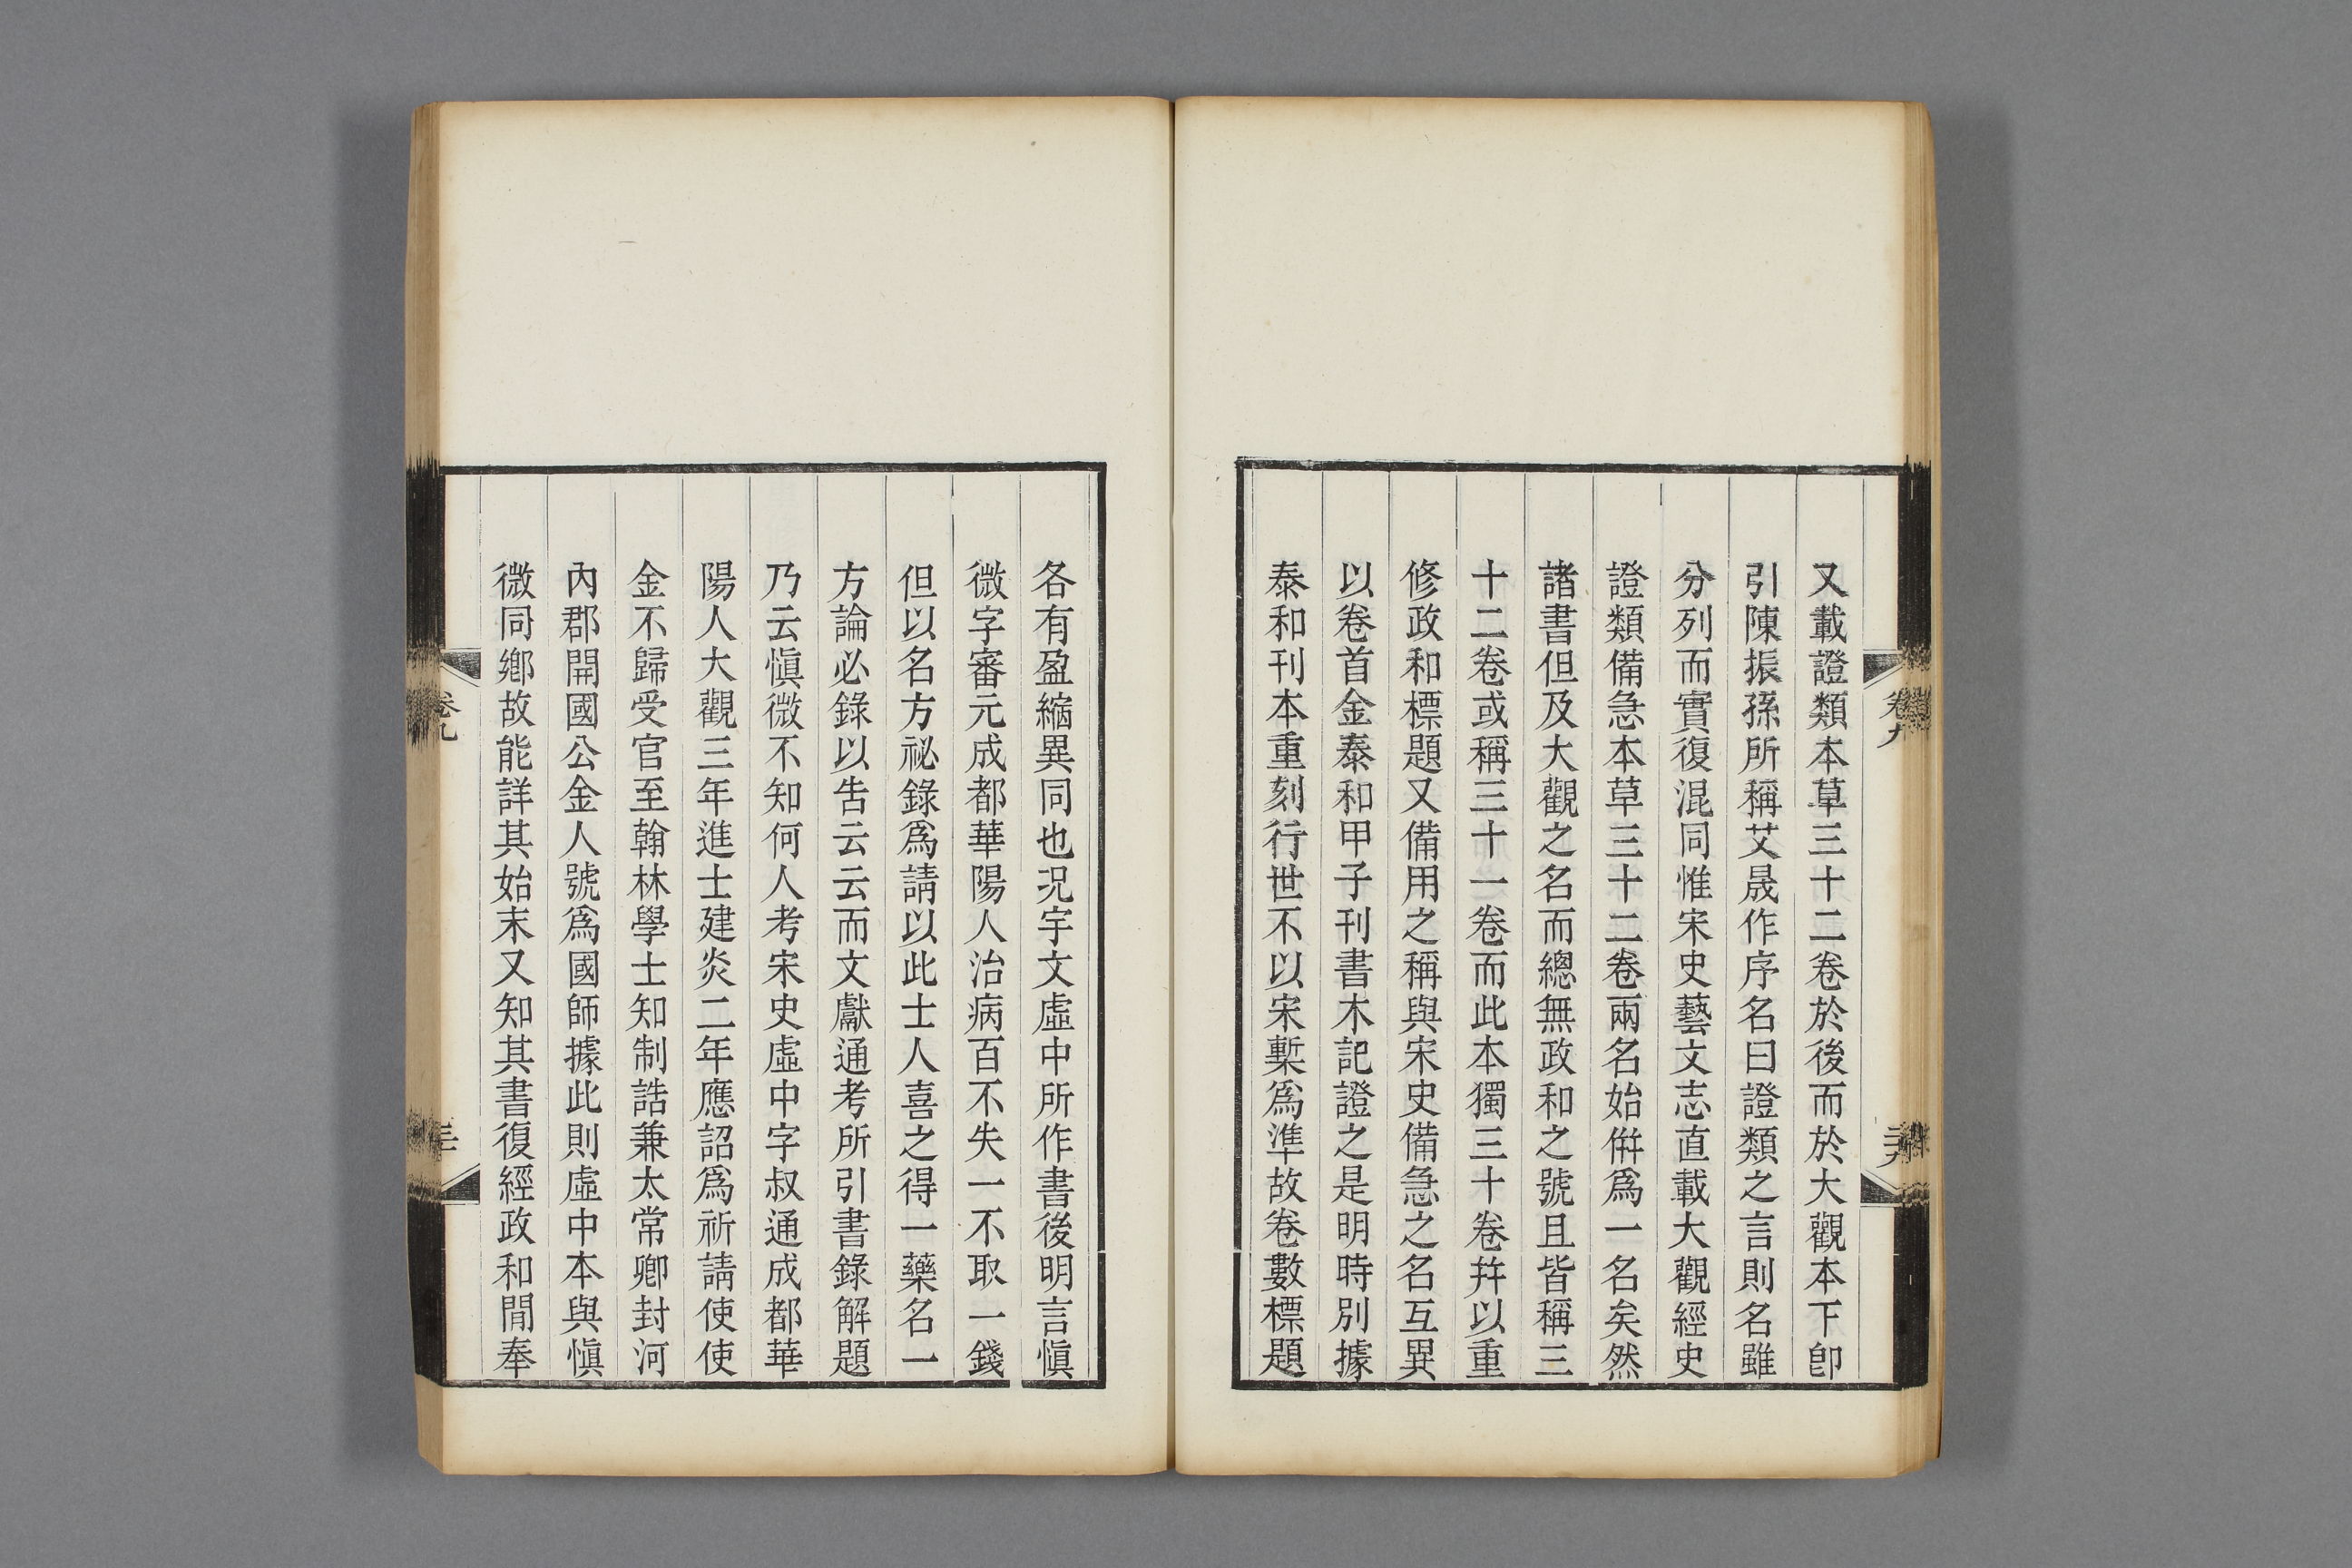 又載證類本草三十二卷於後而於大觀本下卽
引陳振孫所稱艾晟作序名曰證類之言則名雖
分列而實復混同惟宋史藝文志直載大觀經史
證類備急本草三十二卷兩名始倂爲一名矣然
諸書但及大觀之名而總無政和之號且皆稱三
十二卷或稱三十一卷而此本獨三十卷幷以重
修政和標題又備用之稱與宋史備急之名互異
以卷首金泰和甲子刊書木記證之是明時別據
泰和刊本重刻行世不以宋槧爲準故卷數標題
各有盈縮異同也況宇文虛中所作書後明言愼
微字審元成都華陽人治病百不失一不取一錢
但以名方祕錄爲請以此士人喜之得一藥名一
方論必錄以告云云而文獻通考所引書錄解題
乃云愼微不知何人考宋史虛中字叔通成都華
陽人大觀三年進士建炎二年應詔爲祈請使使
金不歸受官至翰林學士知制誥兼太常卿封河
內郡開國公金人號爲國師據此則虛中本與愼
微同鄉故能詳其始末又知其書復經政和閒奉
卷九
卷九